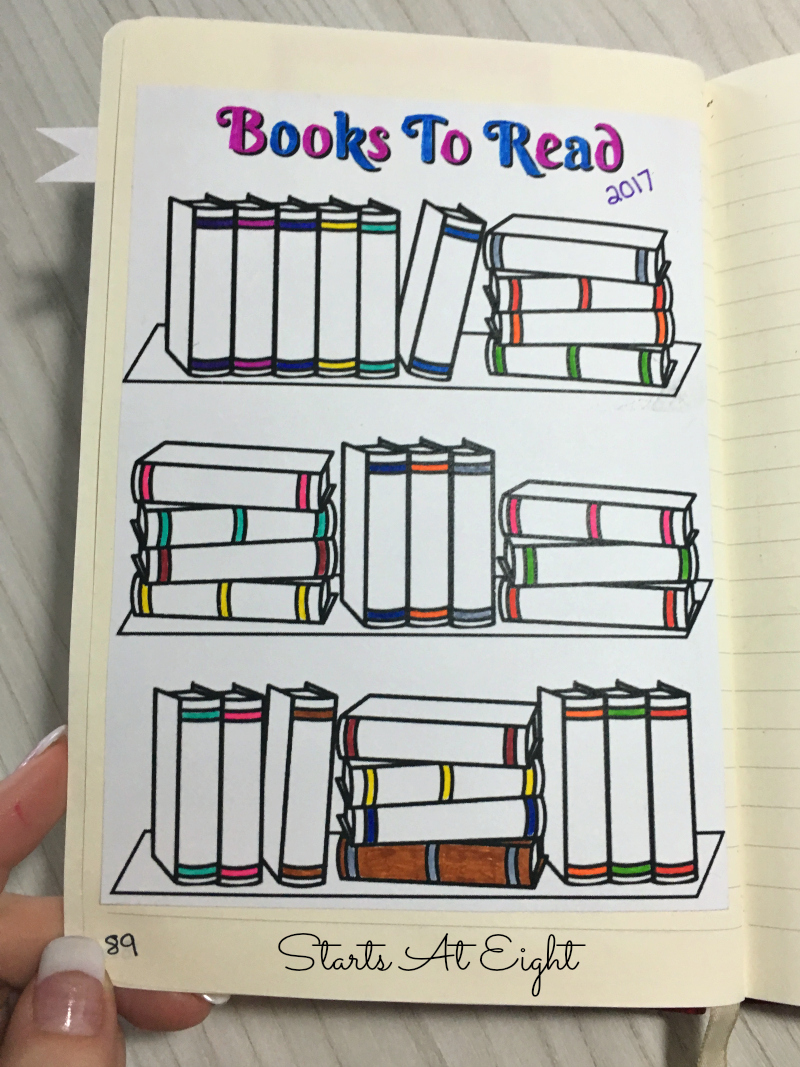 Books To Read
2017
89
Starts At Eight